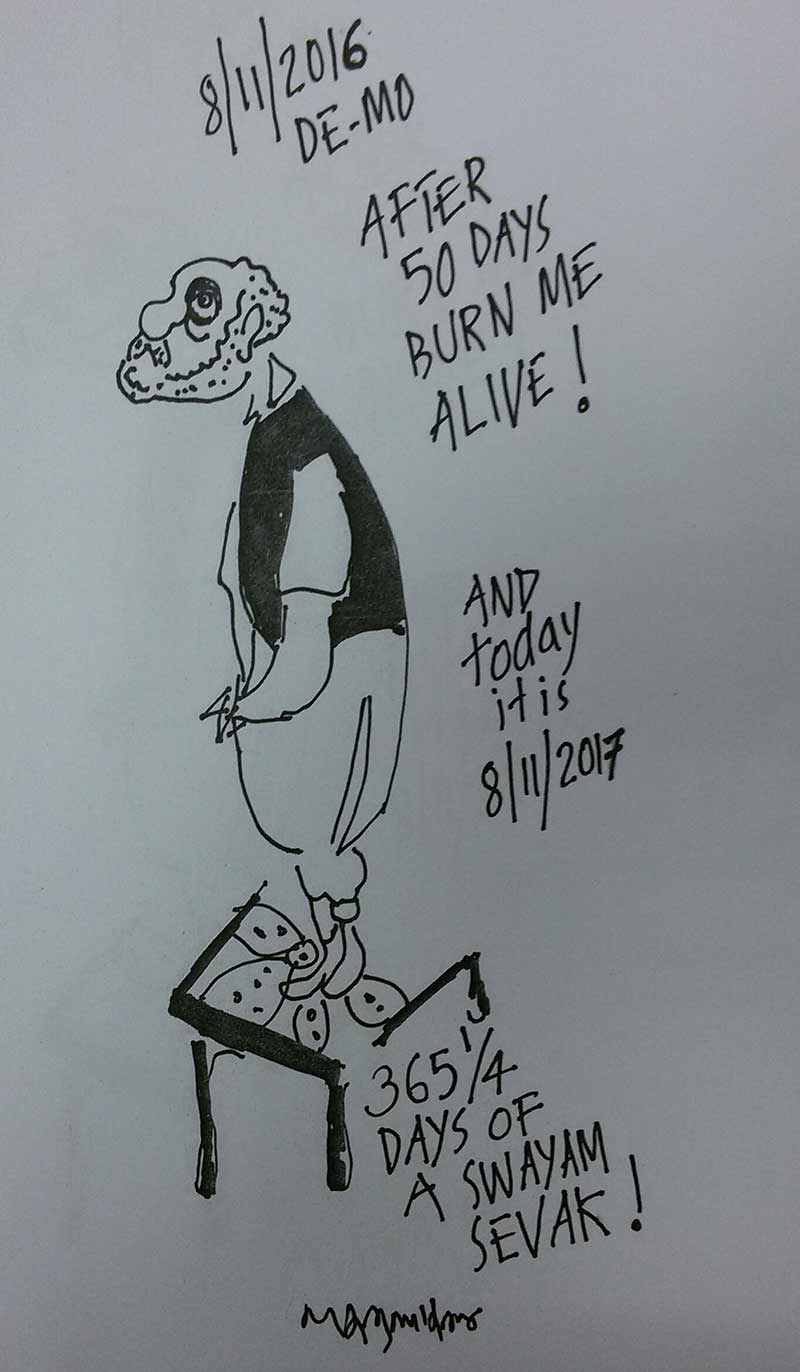 8/11/2016
DE-MO
AFTER
50 DAYS
BURN ME
ALIVE!
AND
today
it is
8/11/2017
365 1/4
DAYS OF
A SWAYAM
SEVAK!